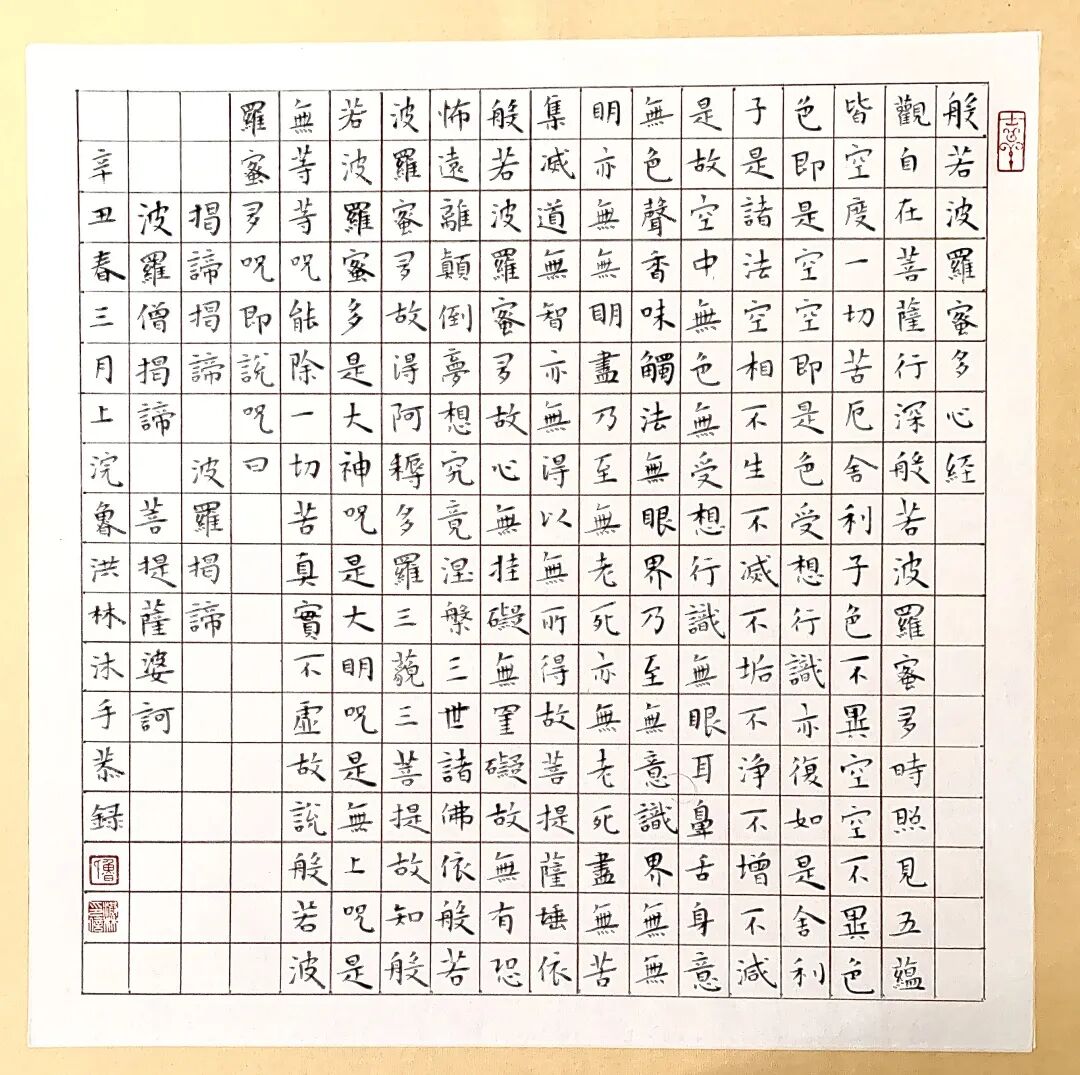 般若波羅蜜多心経
觀自在菩薩行深般若波羅蜜多時照見五蘊
皆空度一切苦厄舍利子色不異空空不異色
色即是空空即是色受想行識亦復如是舍利
子是諸法空相不生不滅不垢不浄不增不減
是故空中無色無受想行識無眼耳鼻舌身意
無色聲香味觸法無眼界乃至無意識界無無
明亦無無明盡乃至無老死亦無老死盡無苦
集滅道無智亦無得以無所得故菩提薩埵依
般若波羅蜜多故心無挂礙無罣礙故無有恐
怖遠離顛倒夢想究竟涅槃三世諸佛依般若
波羅蜜多故得阿耨多羅三藐三菩提故知般
若波羅蜜多是大神咒是大明咒是無上咒是
無等等咒能除一切苦真實不虛故說般若波
羅蜜多咒即說咒曰
揭諦揭諦 波羅揭諦
波羅僧揭諦 菩提薩婆訶
辛丑春三月上浣魯洪林沐手恭録